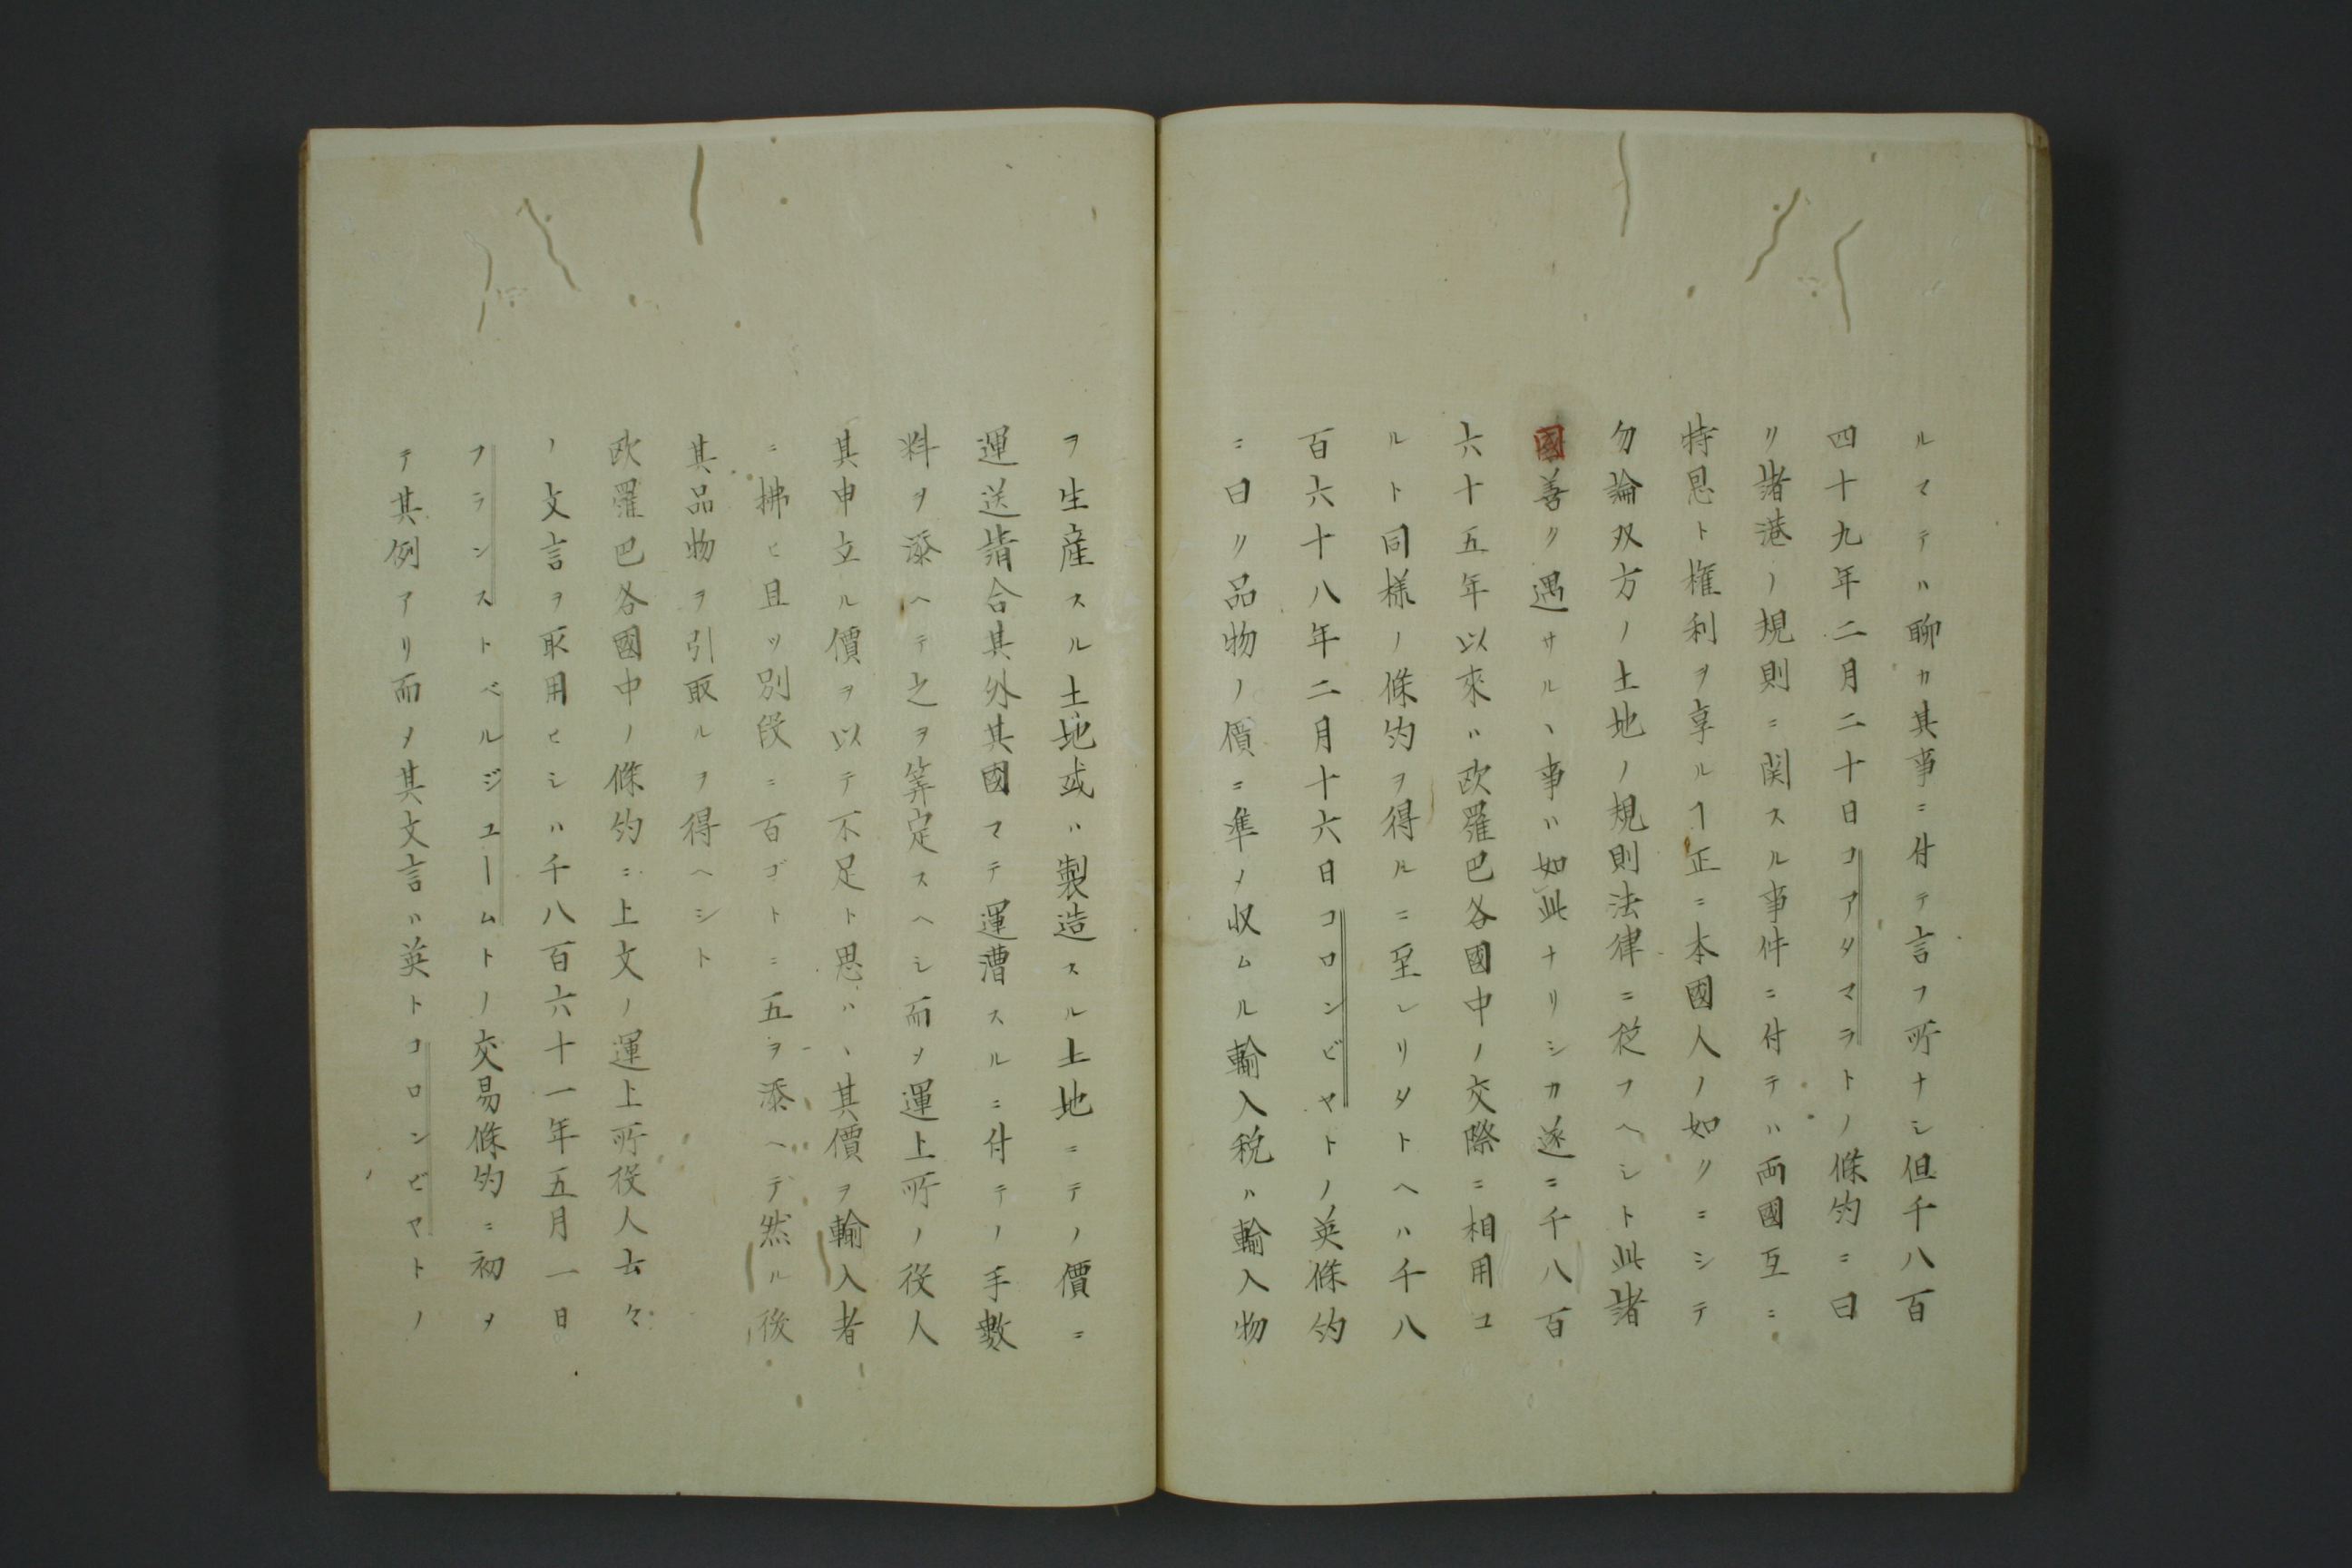 ルマテハ聊カ其事ニ付テ言フ所ナシ但千八百
四十九年二月二十日コアタマラトノ條約ニ曰
リ諸港ノ規則ニ関スル事件ニ付テハ両國互ニ
特恩ト権利ヲ享ルヿ正ニ本國人ノ如クニシテ
勿論双方ノ土地ノ規則法律ニ従フヘシト此諸
國善ク遇サルヽ事ハ如此ナリシカ遂ニ千八百
六十五年以來ハ欧羅巴各國中ノ交際ニ相用ユ
ルト同様ノ條約ヲ得ルニ至レリタトヘハ千八
百六十八年二月十六日コロンビヤトノ英條約
ニ曰リ品物ノ價ニ準メ収ムル輸入税ハ輸入物
ヲ生産スル土地或ハ製造スル土地ニテノ價ニ
運送請合其外其國マテ運漕スルニ付テノ手數
料ヲ添ヘテ之ヲ筭定スヘシ而メ運上所ノ役人
其申立ル價ヲ以テ不足ト思ハヽ其價ヲ輸入者
ニ拂ヒ且ツ別段ニ百ゴトニ五ヲ添ヘテ然ル後
其品物ヲ引取ルヲ得ヘシト
欧羅巴各國中ノ條約ニ上文ノ運上所役人云々
ノ文言ヲ取用ヒシハ千八百六十一年五月一日
フランストベルジユームトノ交易條約ニ初メ
テ其例アリ而メ其文言ハ英トコロンビヤトノ